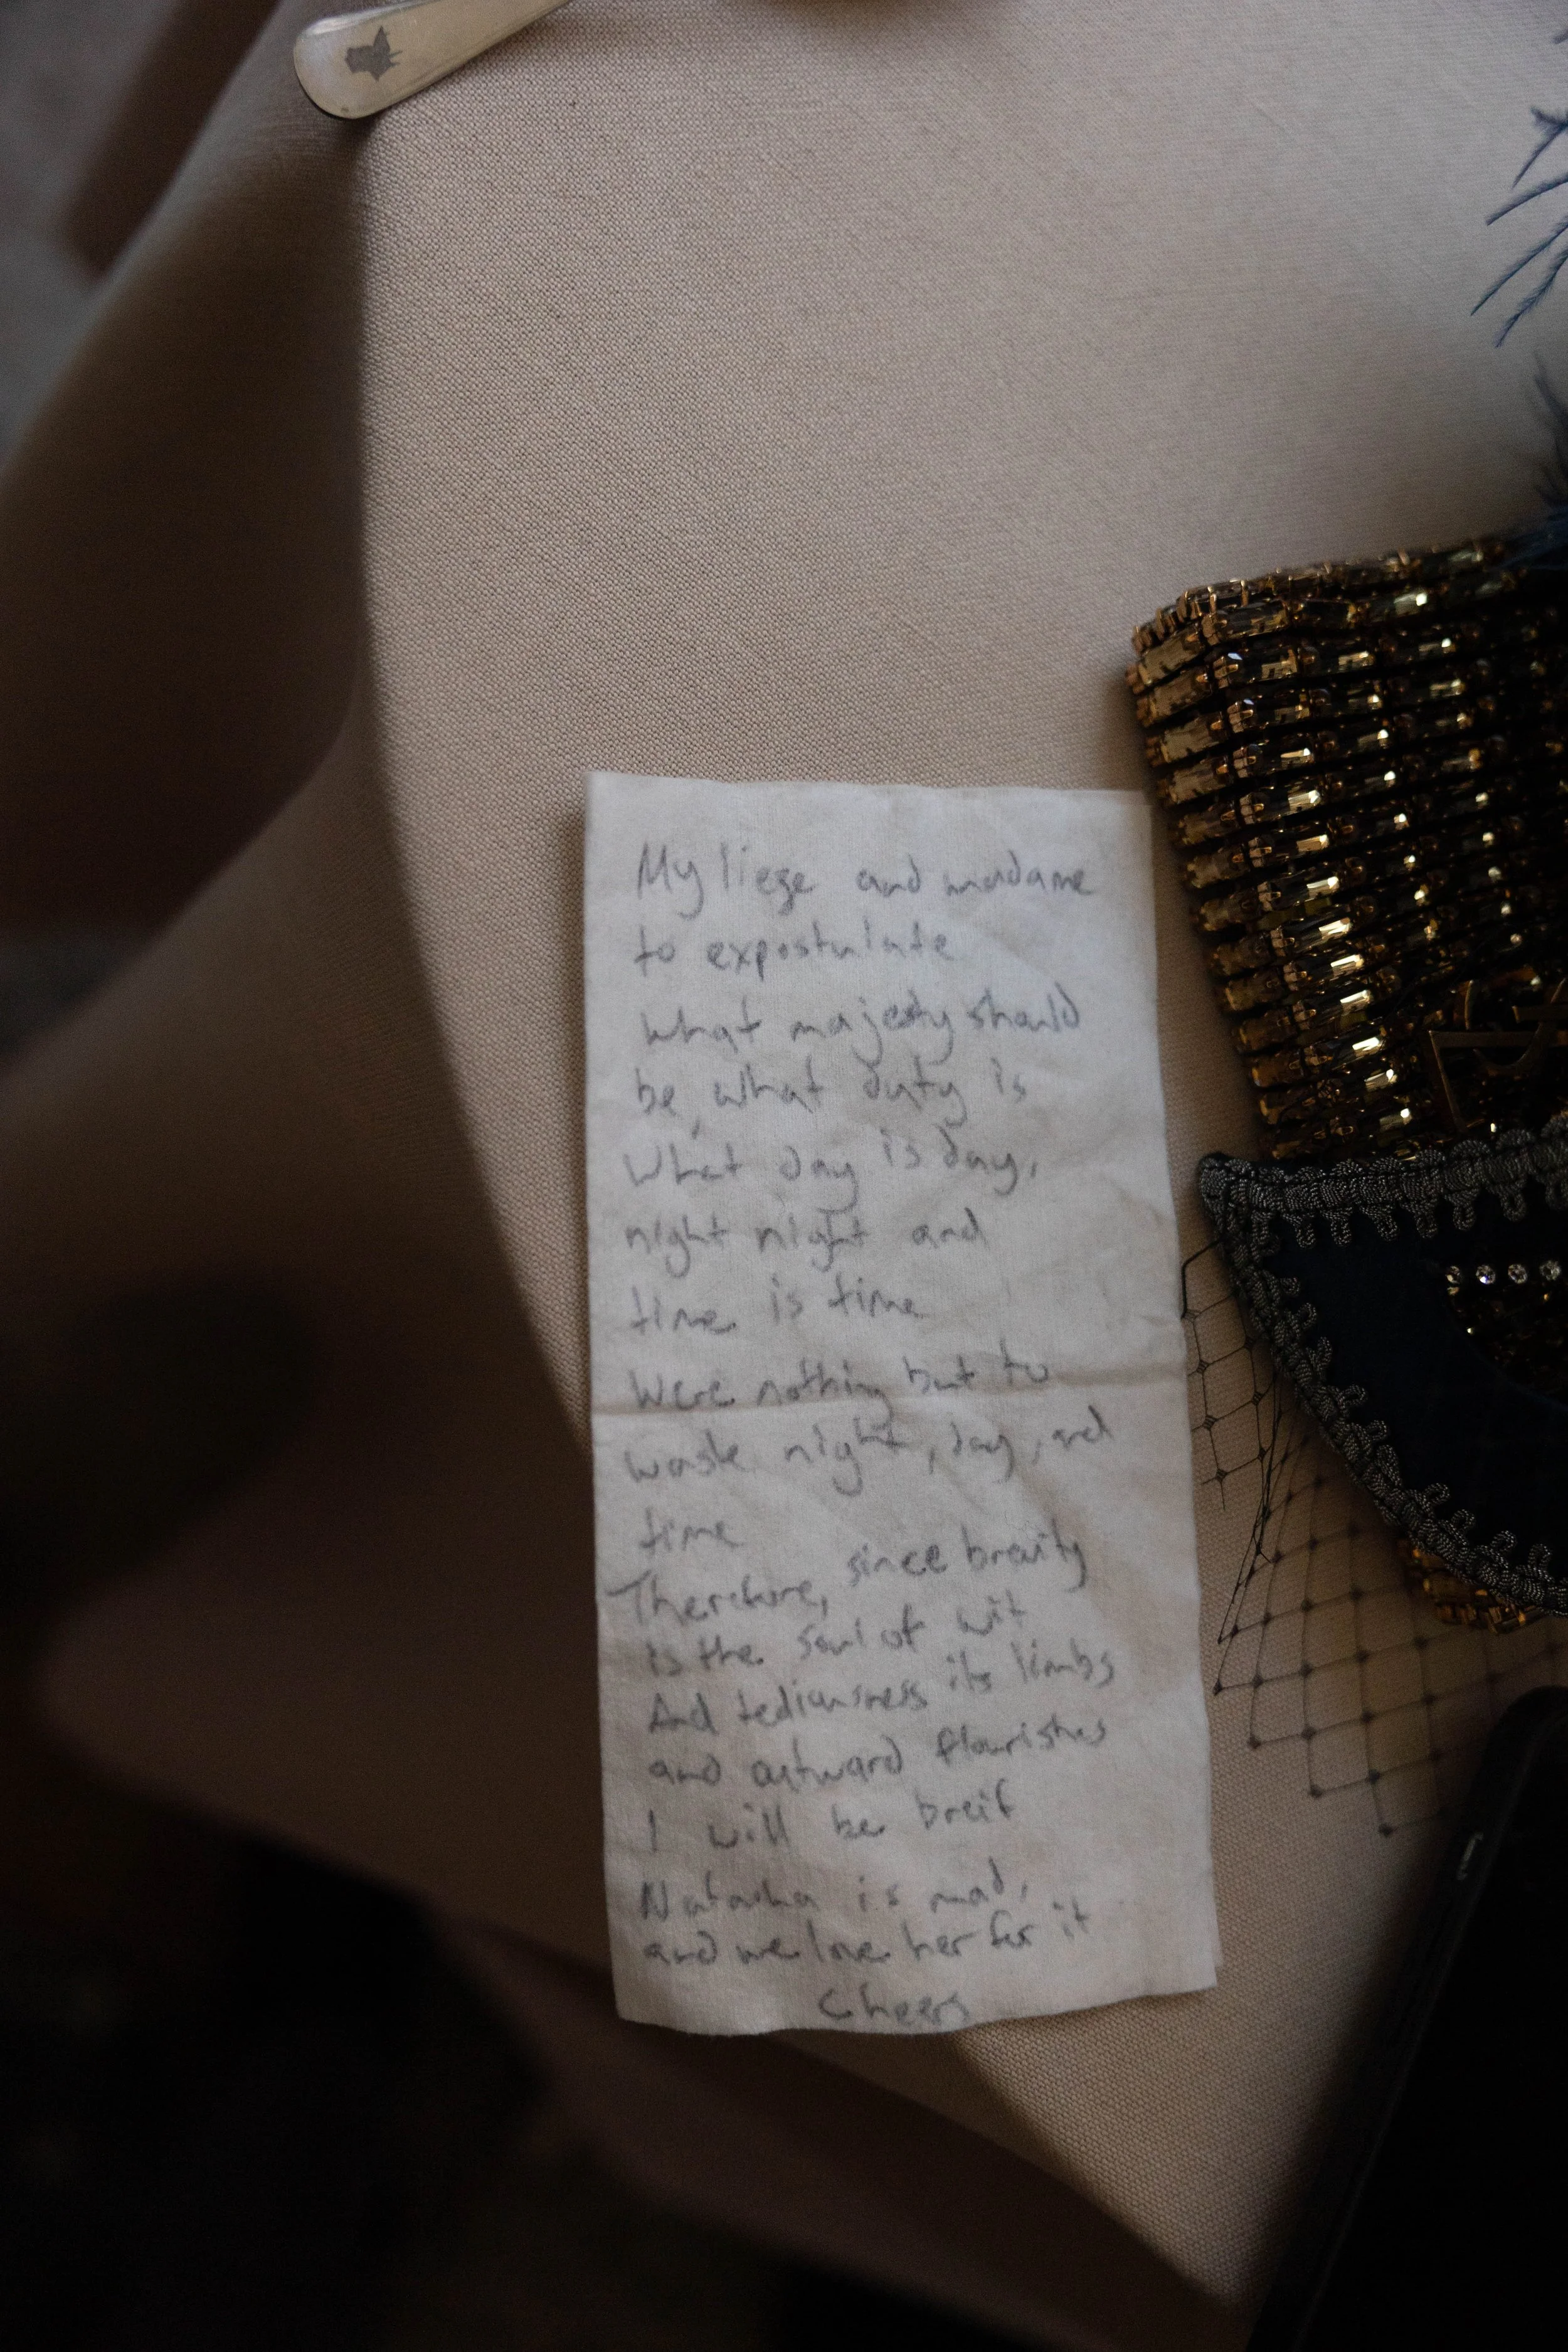 My liege and madame
to expostulate
What majesty should
be, what duty is
What day is day,
night night and
time is time
Were nothing but to
waste night, day, and
time
Therefore, since brevity
is the soul of wit
And tediousness its limbs
and outward flourishes
I will be breif
Natasha is mad,
and we love her for it
Cheers